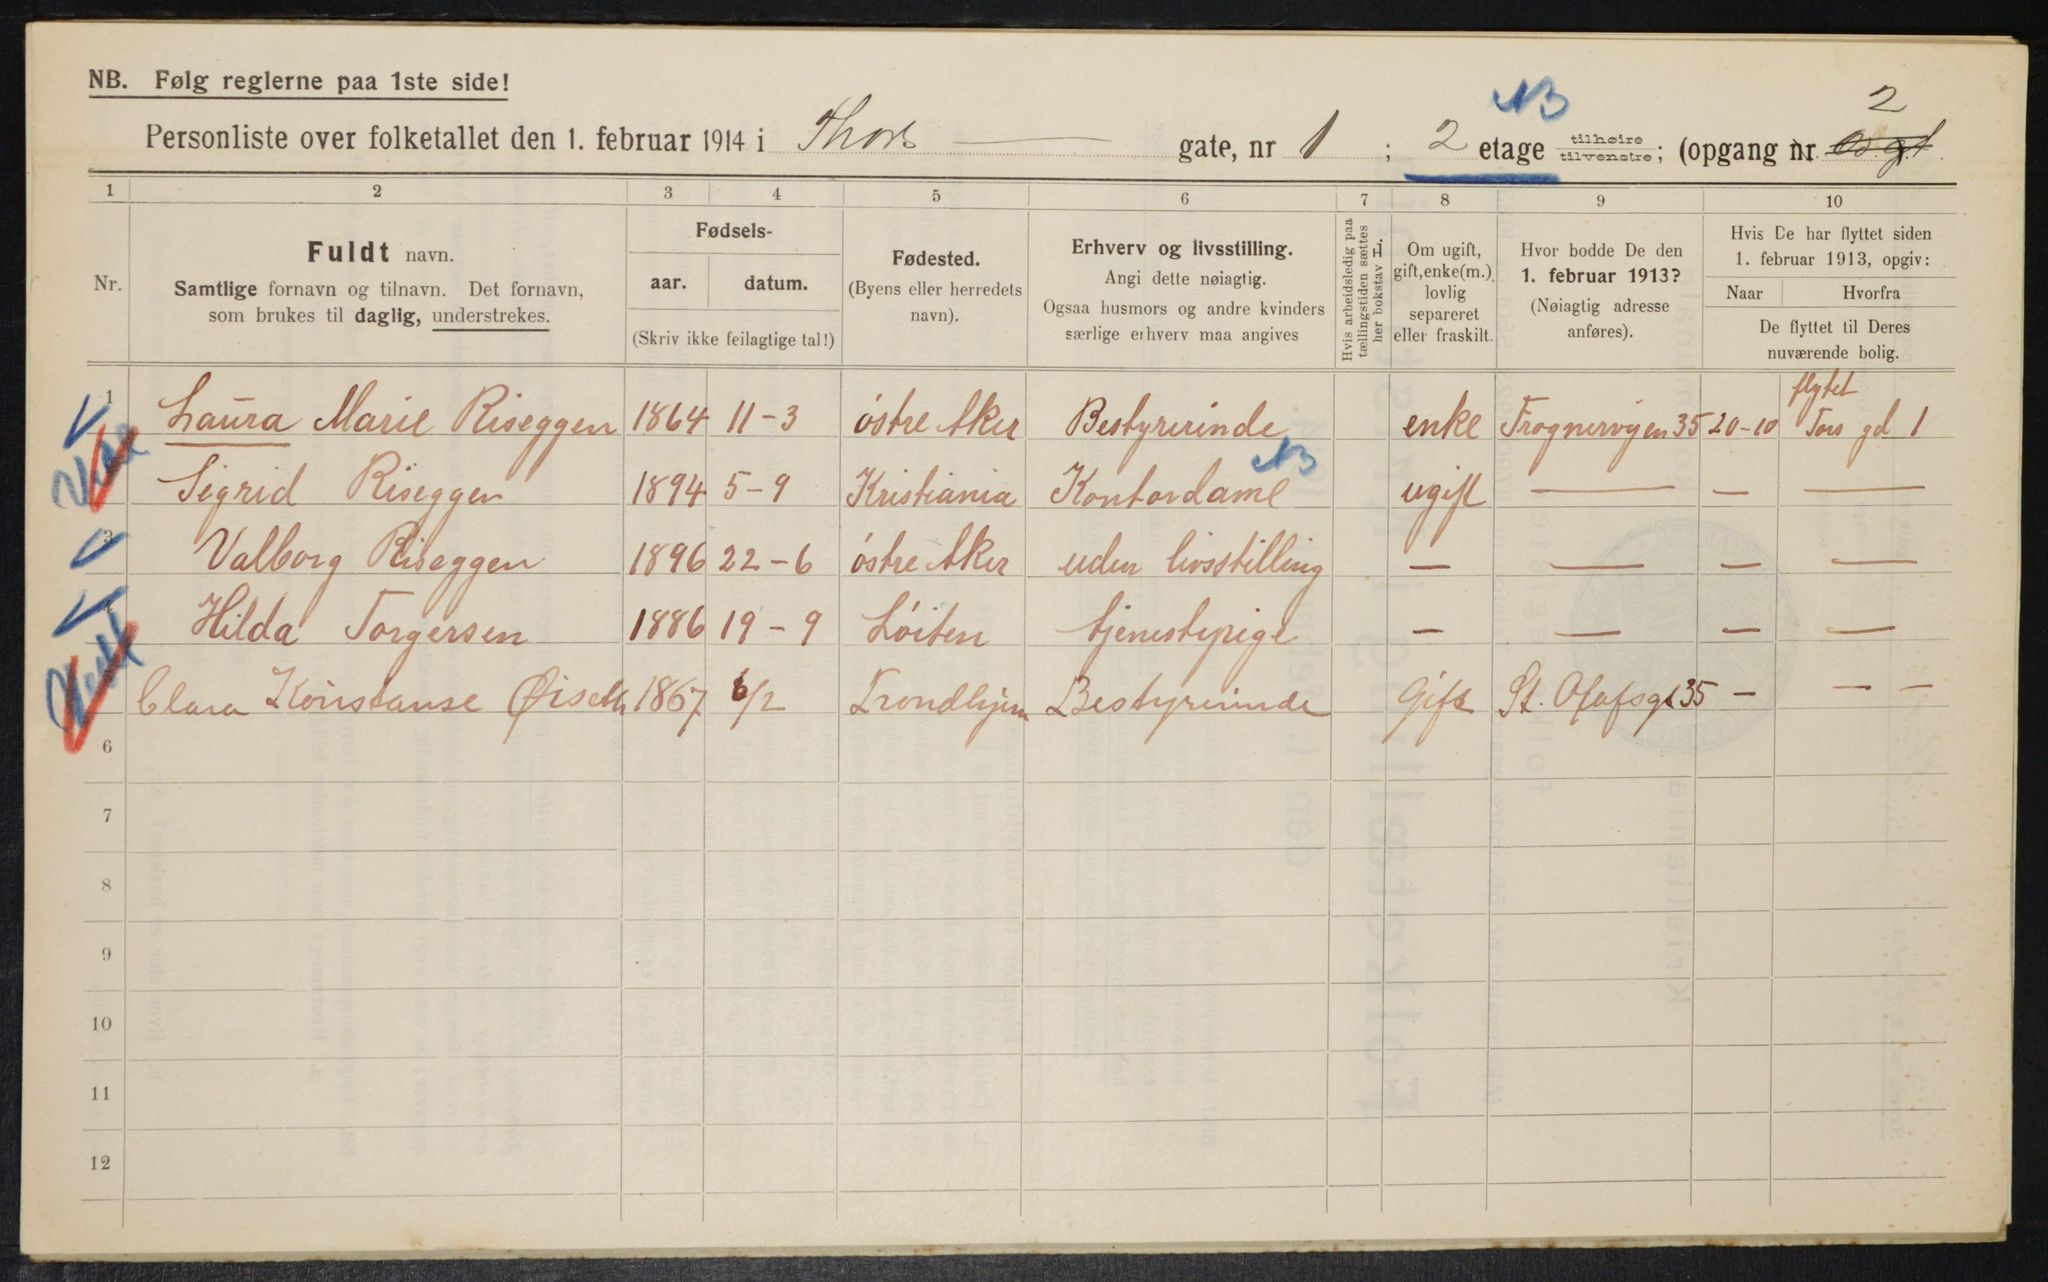 NB. Følg reglerne paa 1ste side!
NB 2
Personliste over folketallet den 1. februar 1914 i Thors gate, nr 1; 2 etage tilhøire tilvenstre; (opgang nr
1 2 3 4 5 6 7 8 9 10
Nr.
Fuldt navn.
Samtlige fornavn og tilnavn. Det fornavn,
som brukes til daglig, understrekes.
Fødsels-
aar. datum.
(Skriv ikke feilagtige tal!)
Fødested.
(Byens eller herredets
navn).
Erhverv og livsstilling.
Angi dette nøiagtig.
Ogsaa husmors og andre kvinders
særlige erhverv maa angives
Hvis arbeidsledig paa
tællingstiden sættes
her bokstav L.
Om ugift,
gift, enke(m.),
lovlig
separeret
eller fraskilt.
Hvor bodde De den
1. februar 1913?
(Nøiagtig adresse
anføres).
Hvis De har flyttet siden
1. februar 1913, opgiv:
Naar Hvorfra
De flyttet til Deres
nuværende bolig.
1 Laura Marie Riseggen 1864 11-3 östre Aker Bestyrerinde enke Frognerveien 35 20-10 flytet Tors gd 1
Sigrid Riseggen 1894 5-9 Kristiania Kontordame NB ugift — — —
3 Valborg Riseggen 1896 22-6 östre Aker uden livsstilling — — — —
4 Hilda Torgersen 1886 19-9 Löiten tjenestepige — — — —
Clara Konstanse Øiseth 1867 6/2 Trondhjem Bestyrerinde Gift St. Olafsgt 35 — — —
6
7
8
9
10
11
12